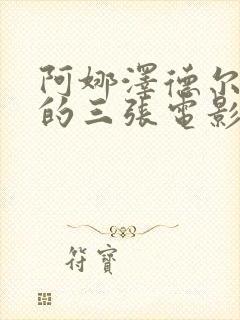 阿娜澤德尔
的三張電影
符寶